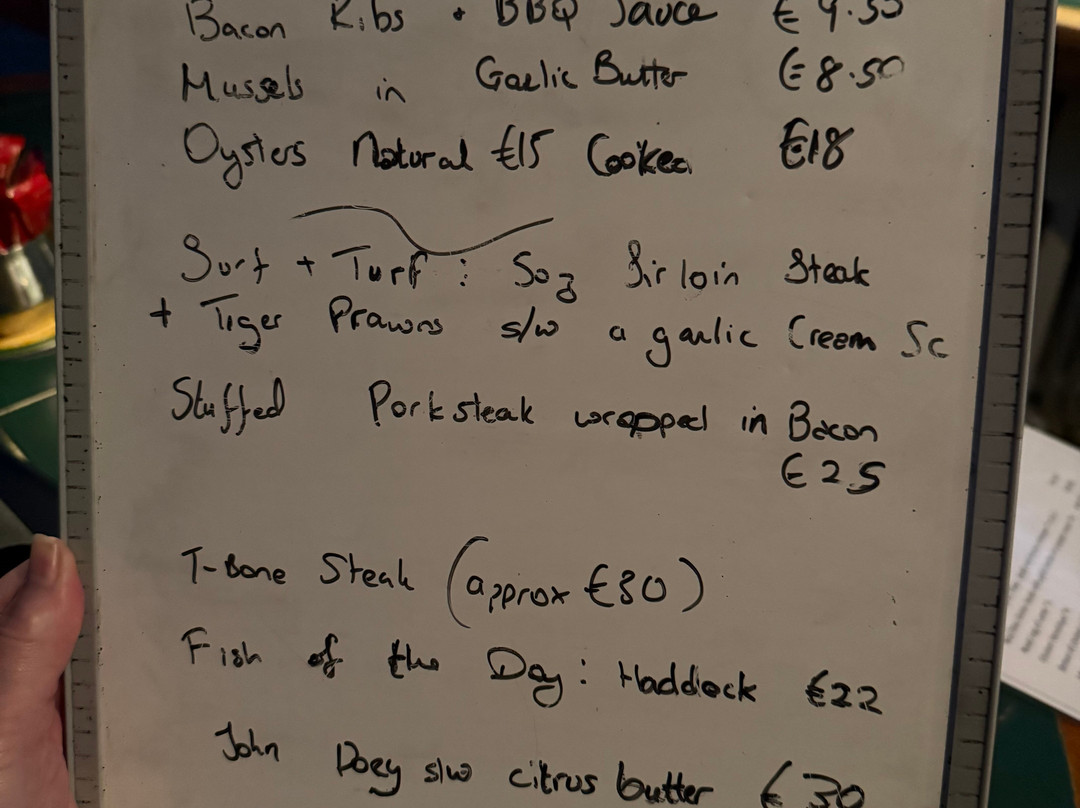 Bacon Ribs + BBQ Sauce € 9.50
Mussels in Garlic Butter € 8.50
Oysters Natural €15 Cooked €18
Surf + Turf : 5oz Sirloin Steak
+ Tiger Prawns s/w a garlic Cream Sc
Stuffed Pork steak wrapped in Bacon
€ 25
T-Bone Steak (approx €30)
Fish of the Day : Haddock €22
John Dory s/w citrus butter € 30